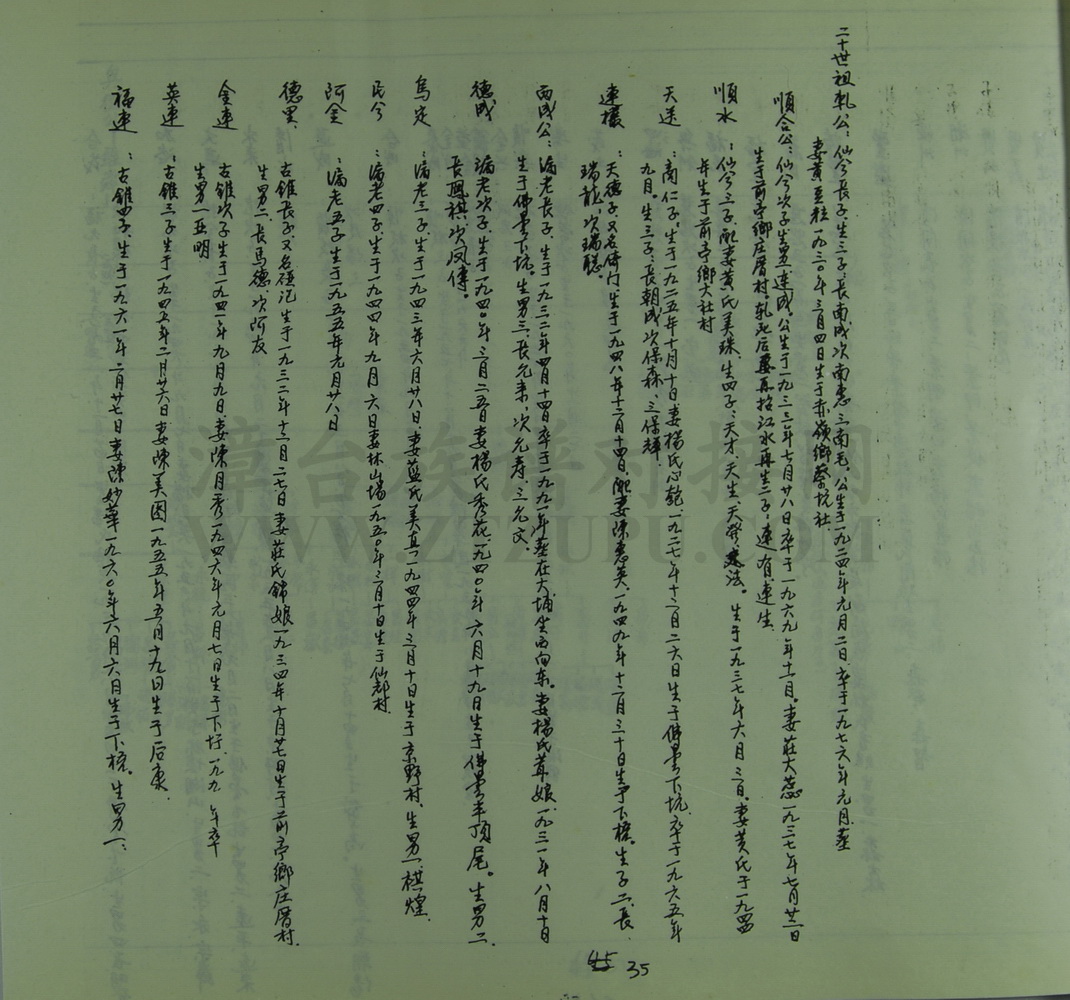 二十世祖軋公：仙兮長子.生三子：長南成次南惠三南毛.公生于一九二四年元月二日.卒于一九七六年元月.葬
妻黃豆粒一九三〇年三月四日生于赤嶺鄉蔡坑社.
順合公：仙兮次子生男一連成.公生于一九三三年七月廿八日卒于一九六九年十一月.妻莊大蕊一九三七年七月廿二日
生于前亭鄉庄厝村.軋死后妻再招江水再生二子:連有.連生.
順水：仙兮三子.配妻黃氏美珠.生四子：天才.天生.天發.法.生于一九三七年六月三日.妻黃氏于一九四四
年生于前亭鄉大社村
天送：商仁子.生于一九二五年十月十日.妻楊氏心乾一九二七年十二月二六日生于佛曇下坑.卒于一九六五年
九月.生三子:長朝成次保森.三保輝.
連欉：天德子又名倚门生于一九四八年十二月十四日.配妻陳惠英一九四九年十二月三十日生于下樓.生子二.長
瑞龍.次瑞聪.
南成公：滿老長子.生于一九三二年四月十四日卒于一九九一年葬在大埔坐西向东.妻楊氏茸娘一九三一年八月十日
生于佛曇下坑.生男三.長允来.次允寿.三允文.
德成：滿老次子.生于一九四〇年三月二五日妻楊氏秀花一九四〇年六月十九日生于佛曇半頂尾.生男二
長鳳祺.次凤傳.
烏定：滿老三子.生于一九四三年六月廿八日.妻藍氏美真一九四四年三月十日生于京野村.生男一棋煌.
民兮：滿老四子.生于一九四四年九月六日妻林山場一九五〇年三月十日生于仙都村.
阿全：滿老五子生于一九五五年元月廿八日
德里：古錐長子又名碰记生于一九三二年十二月二七日妻莊氏錦娘一九三四年十月廿七日生于前亭鄉庄厝村.
生男二.長馬德次阿友
金連：古錐次子生于一九四一年九月九日.妻陳月秀一九四六年元月七日生于下圩.一九九 年卒
生男一亚明
英連：古錐三子生于一九四五年二月廿六日妻陳美图一九五五年五月十九日生于后康.
福連：古錐四子.生于一九六一年二月廿七日妻陳妙華一九六〇年六月六日生于下樓.生男一：
35
漳台族谱对接网
WWW.ZTZUPU.COM